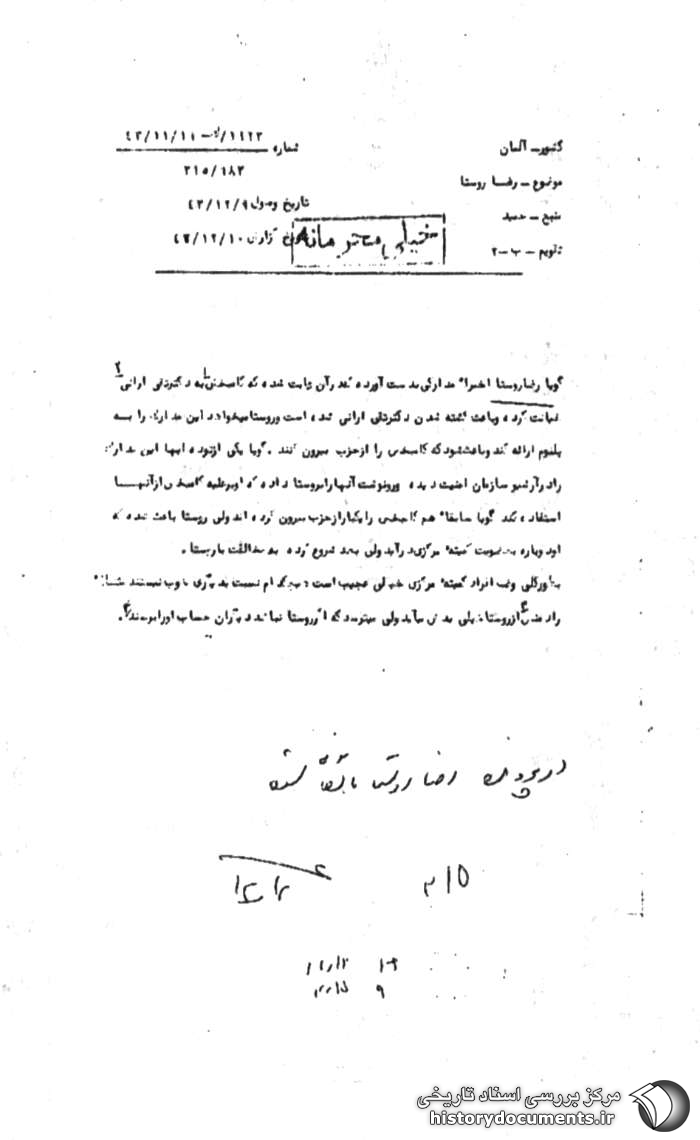 کشور – آلمان
شماره ۱۴۲۳/ – ۴۳/۱۱/۱۰
۳۱۵/۱۸۳
موضوع – رضا روستا
تاریخ وصول ۴۳/۱۲/۹
منبع – حمید
تاریخ گزارش ۴۳/۱۲/۱۰
خیلی محرمانه
تقویم – ب – ۲
گویا رضا روستا اخیرا" مدارکی بدست آورده که در آن ثابت شده که کامبخش ۱ به دکتر تقی ارانی ۲
خیانت کرده و باعث کشته شدن دکتر تقی ارانی شده است و روستا میخواهد این مدارک را به
پلنوم ارائه کند و باعث شود که کامبخش را از حزب بیرون کنند . گویا یکی از توده ایها این مدارک
را در آرشیو سازمان امنیت دیده و رونوشت آنها را بروستا داده که او برعلیه کامبخش از آنها
استفاده کند گویا سابقا" هم کامبخش را یکبار از حزب بیرون کرده اند ولی روستا باعث شده که
او دوباره بعضویت کمیته مرکزی درآید ولی بعد شروع کرده به مخالفت با روستا .
بطور کلی وضع افراد کمیته مرکزی خیلی عجیب است هیچکدام نسبت بدیگری خوب نیستند مثلا"
رادمنش از روستا خیلی بدش میآید ولی میترسد که اگر روستا نماند دیگران حساب او را برسند .
در پرونده رضا روستا بایگانی شود
۳۱۵
مرکز بررسی اسناد تاریخی
historydocuments.ir